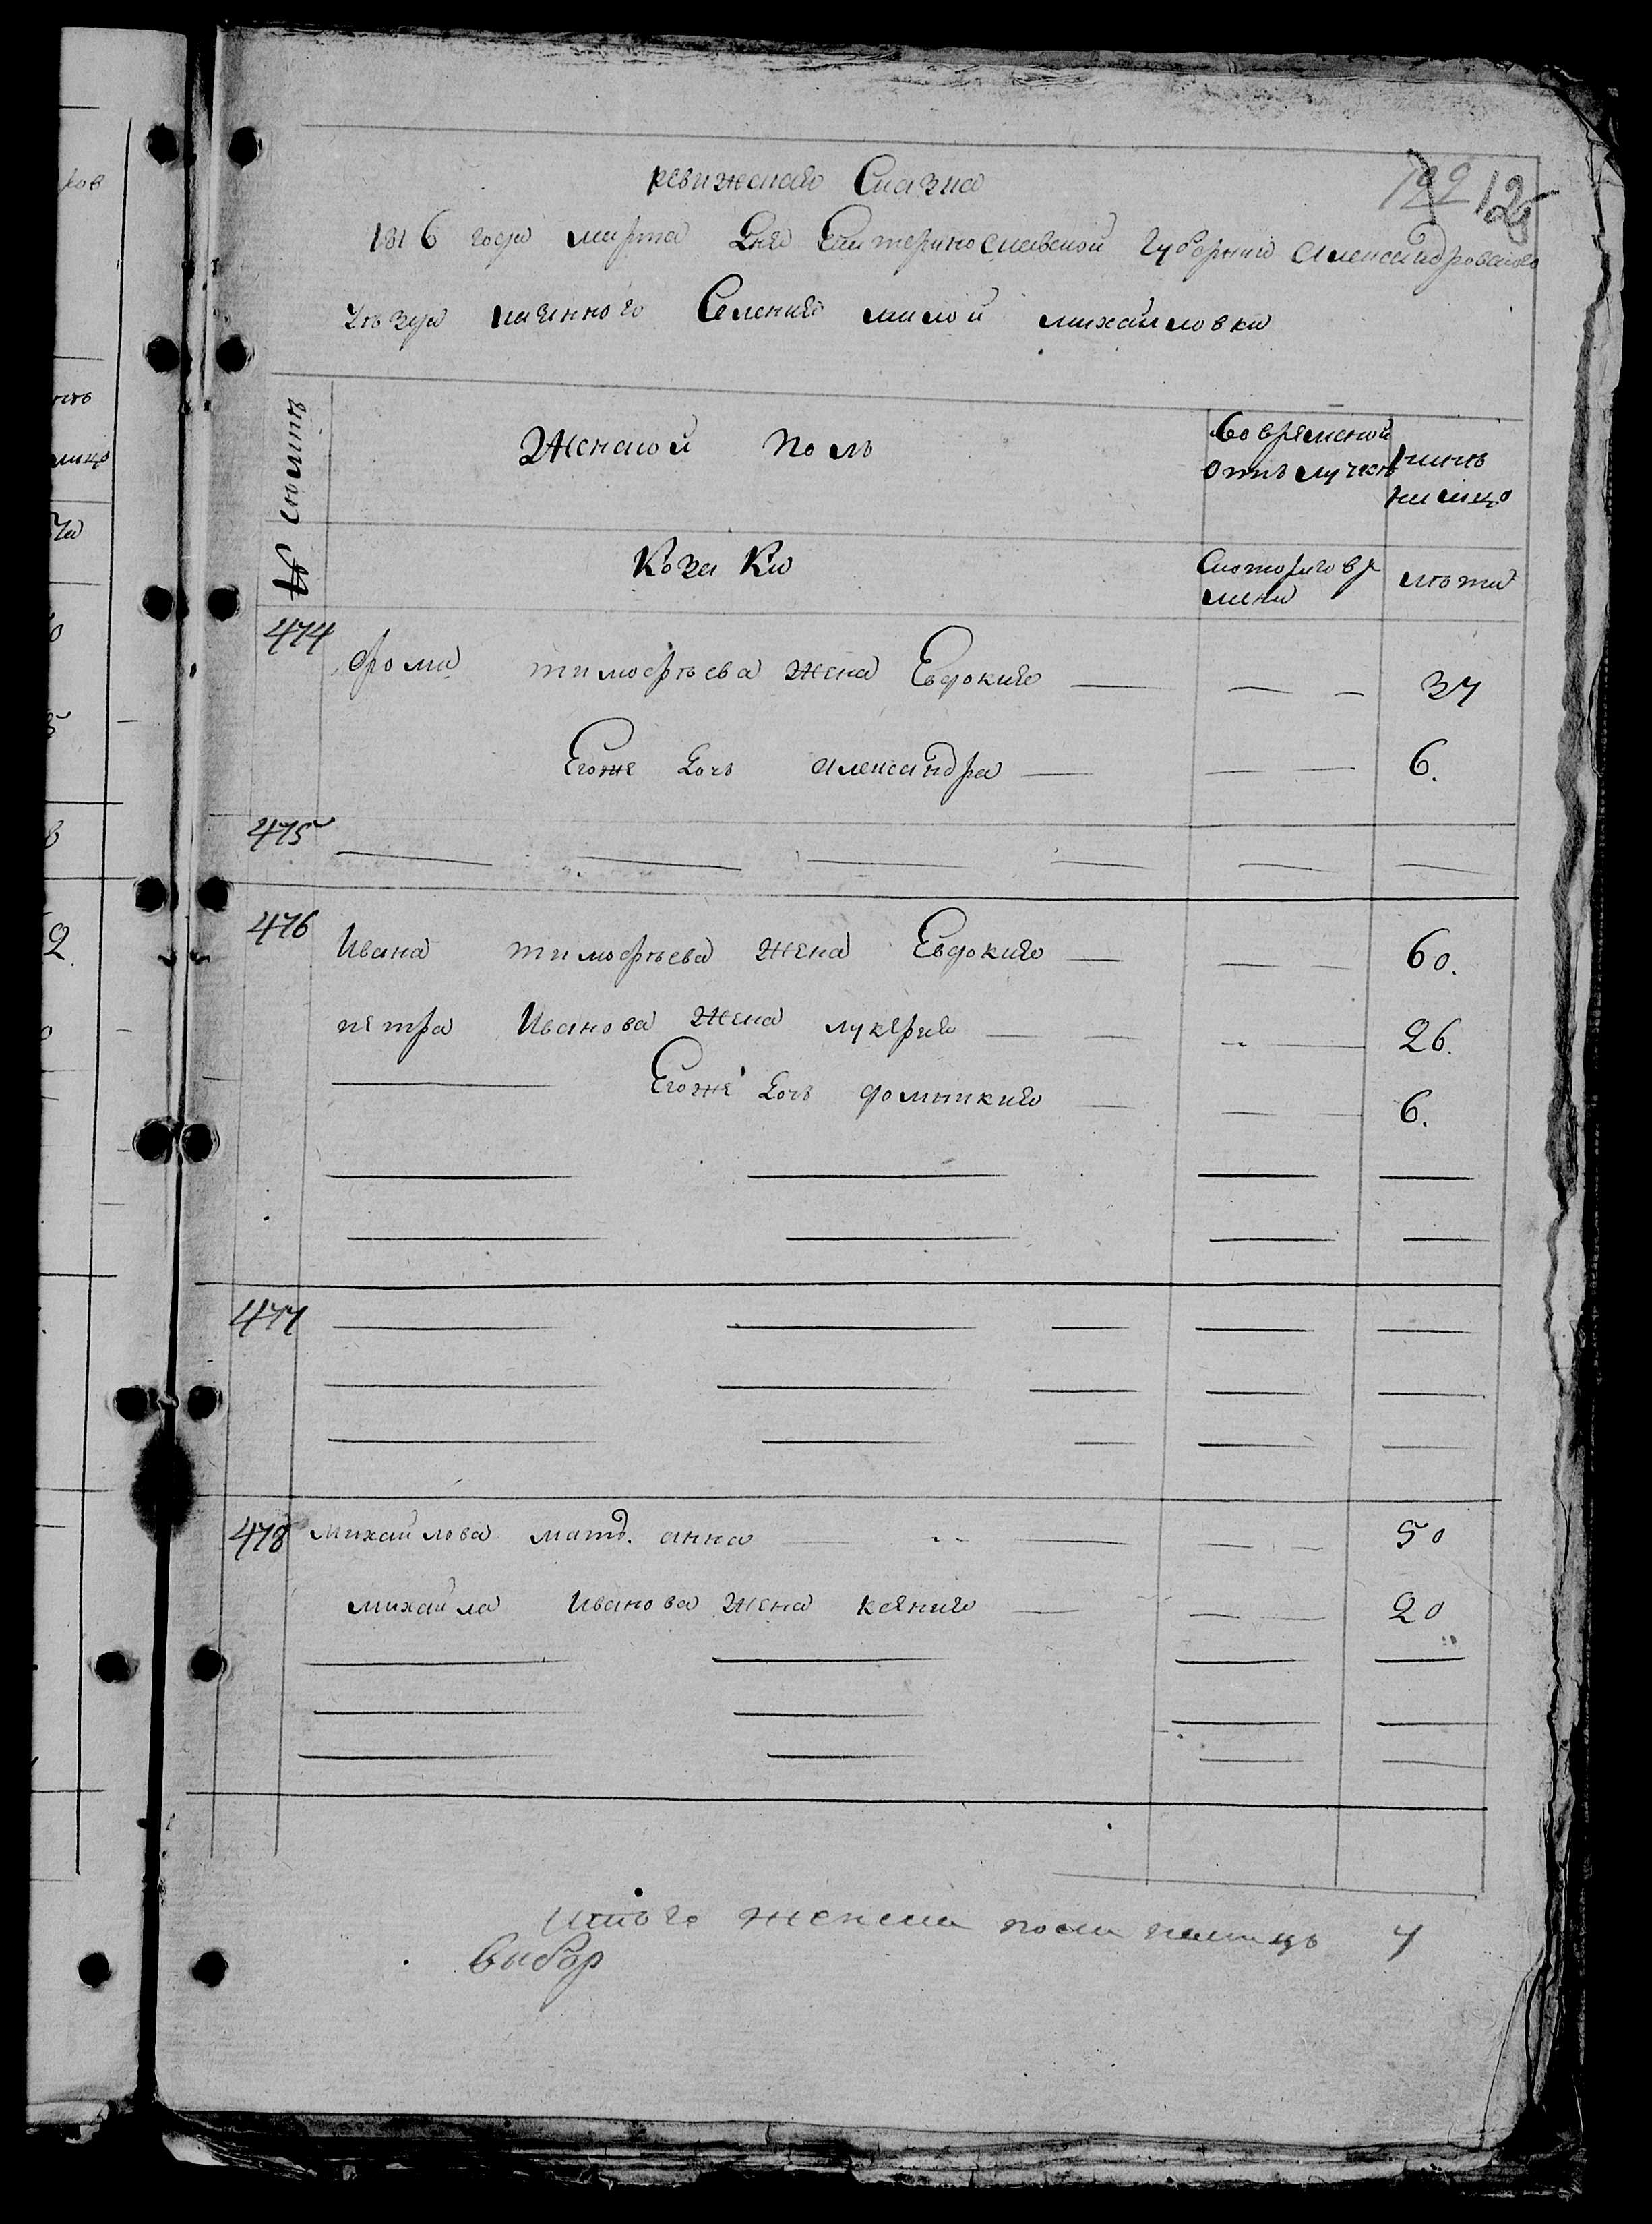 ревижская Сказка
122 125
1816 года марта дня Екатеринославской Губернии Александровского
уѣзда казенного Селения малой михайловки
№ семьи
Женской полъ
во временной отълучкѣ
нынѣ налицо
Козаки
Скоторого времени
лѣта
474 фома тимофѣева жена Евдокия — — — 37
Егоже дочь александра — — — 6.
475 — — — — — —
476 Ивана тимофѣева жена Евдокия — — — 60.
петра Иванова жена лукерия — — — 26.
Егоже дочь домникия — — — 6.
477 — — — — —
478 михайлова мать анна — — — 50
михайла Иванова жена ксения — — — 20
итого женска пола налицо 7
ков
лицо
2